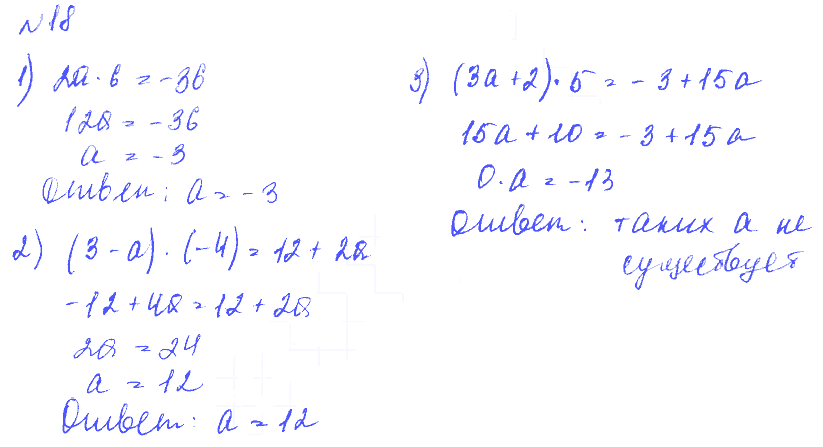 №18
1) 2a · 6 = -36
12a = -36
a = -3
Ответ: a = -3
2) (3 - a) · (-4) = 12 + 2a
-12 + 4a = 12 + 2a
2a = 24
a = 12
Ответ: a = 12
3) (3a + 2) · 5 = -3 + 15a
15a + 10 = -3 + 15a
0 · a = -13
Ответ: таких a не
существует